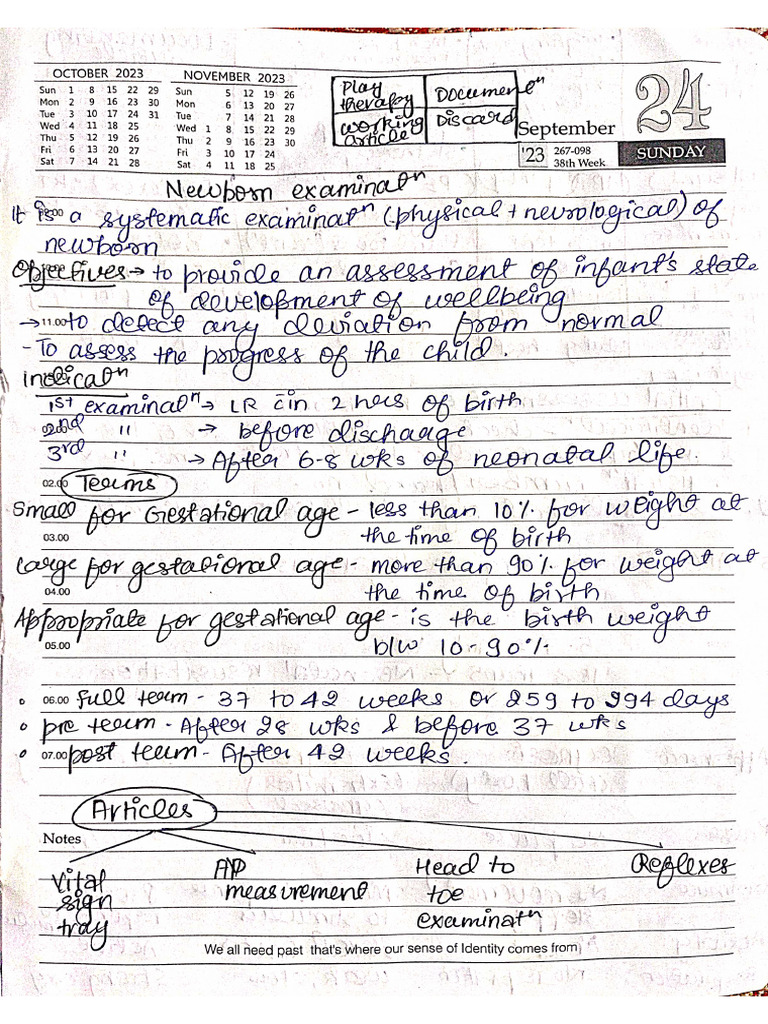 OCTOBER 2023
Sun 1 8 15 22 29
Mon 2 9 16 23 30
Tue 3 10 17 24 31
Wed 4 11 18 25
Thu 5 12 19 26
Fri 6 13 20 27
Sat 7 14 21 28
NOVEMBER 2023
Sun 5 12 19 26
Mon 6 13 20 27
Tue 7 14 21 28
Wed 1 8 15 22 29
Thu 2 9 16 23 30
Fri 3 10 17 24
Sat 4 11 18 25
Play therapy
Documentⁿ
working article
Discard
September
24
'23
267-098
38th Week
SUNDAY
Newborn examinatⁿ
It is a systematic examinatⁿ (physical + neurological) of
newborn
Objectives → to provide an assessment of infant's state
of development of wellbeing
→ 11.00 to detect any deviation from normal
- To assess the progress of the child.
indicatⁿ
1st examinatⁿ → LR c̄in 2 hrs of birth
2nd " → before discharge
3rd " → After 6-8 wks of neonatal life.
02.00 Terms
Small for Gestational age - less than 10% for weight at
03.00 the time of birth
Large for gestational age - more than 90% for weight at
04.00 the time of birth
Appropriate for gestational age - is the birth weight
05.00 b/w 10-90%
06.00 full term - 37 to 42 weeks or 259 to 294 days
pre term - After 28 wks & before 37 wks
07.00 post term - After 42 weeks.
Articles
Notes
Vital sign tray
A/P measurement
Head to toe examinatⁿ
Reflexes
We all need past that's where our sense of Identity comes from